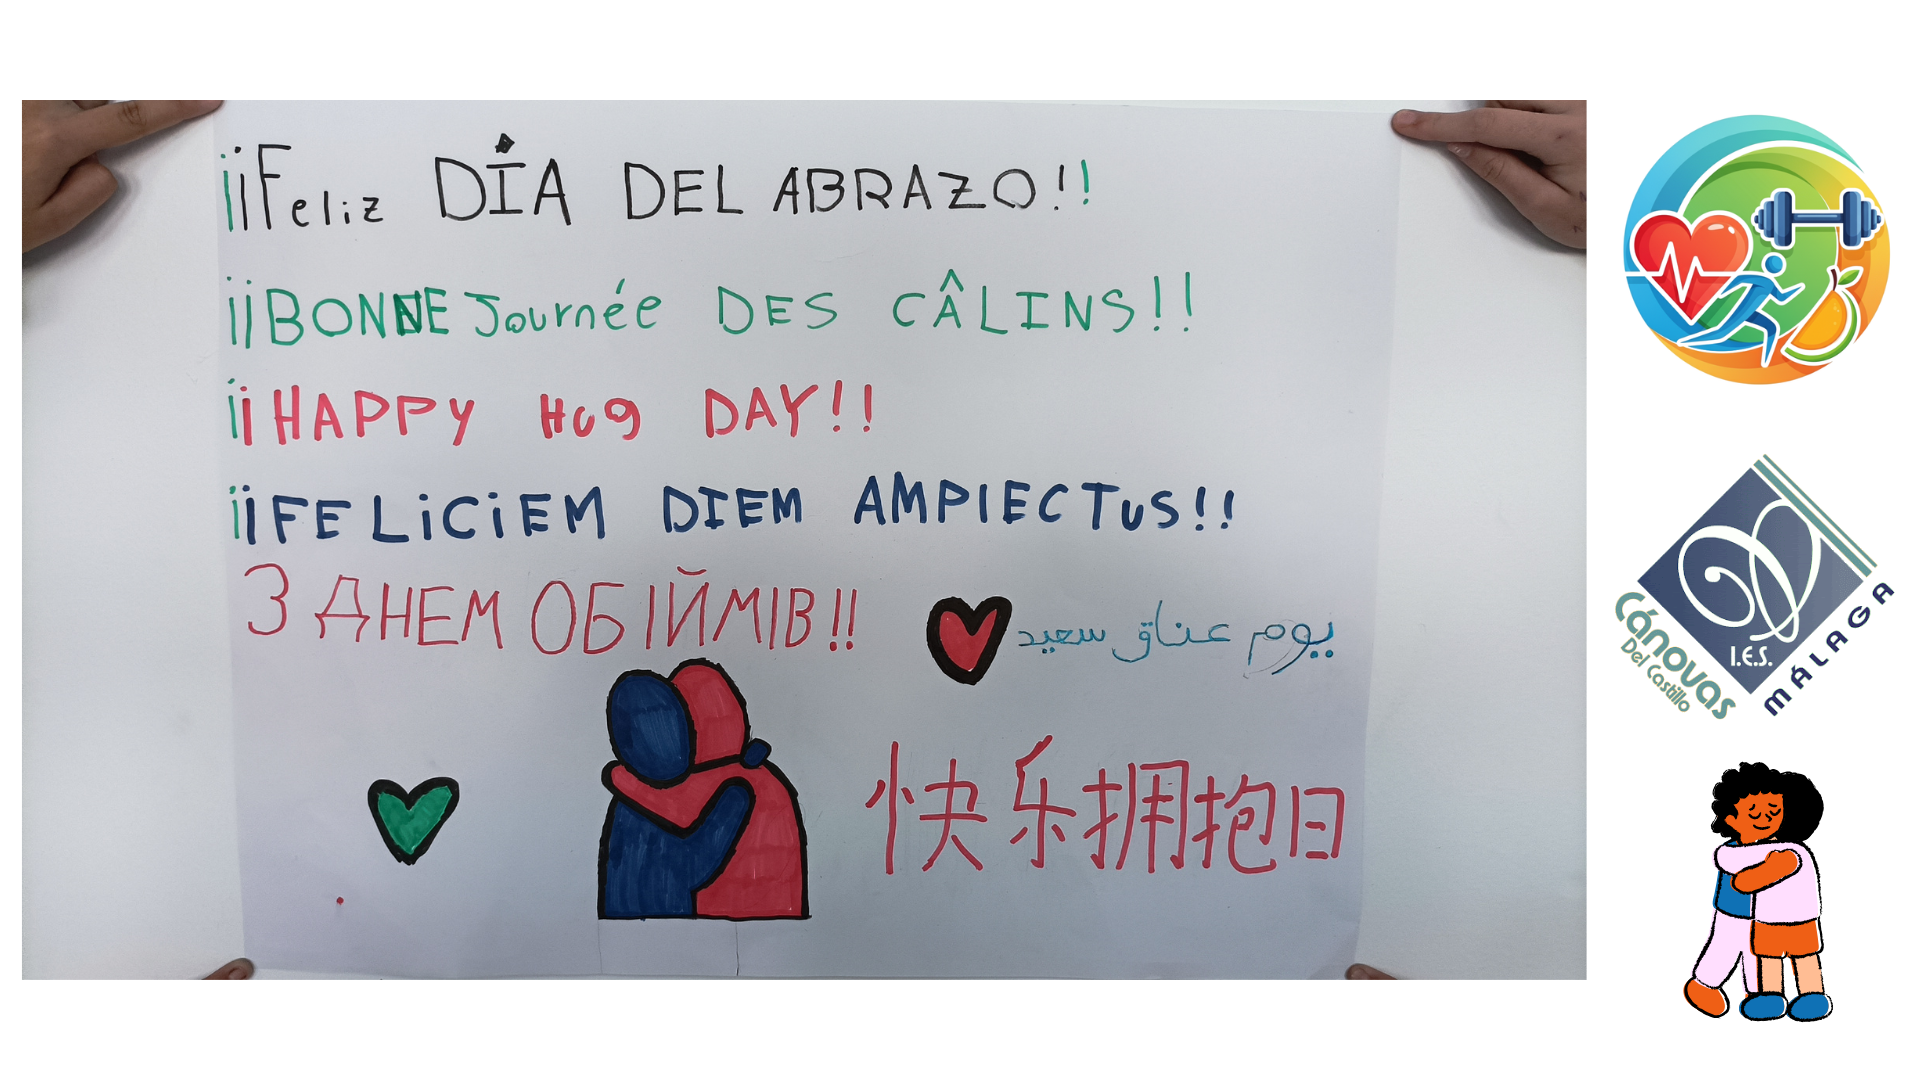 ¡¡Feliz DÍA DEL ABRAZO!!
¡¡BONNE Journée DES CÂLINS!!
¡¡HAPPY Hug DAY!!
¡¡FELiCiEM DIEM AMPIECTuS!!
З ДНЕМ ОБІЙМІВ!!
يوم عناق سعيد
快乐拥抱日
I.E.S.
Cánovas
Del Castillo
MÁLAGA